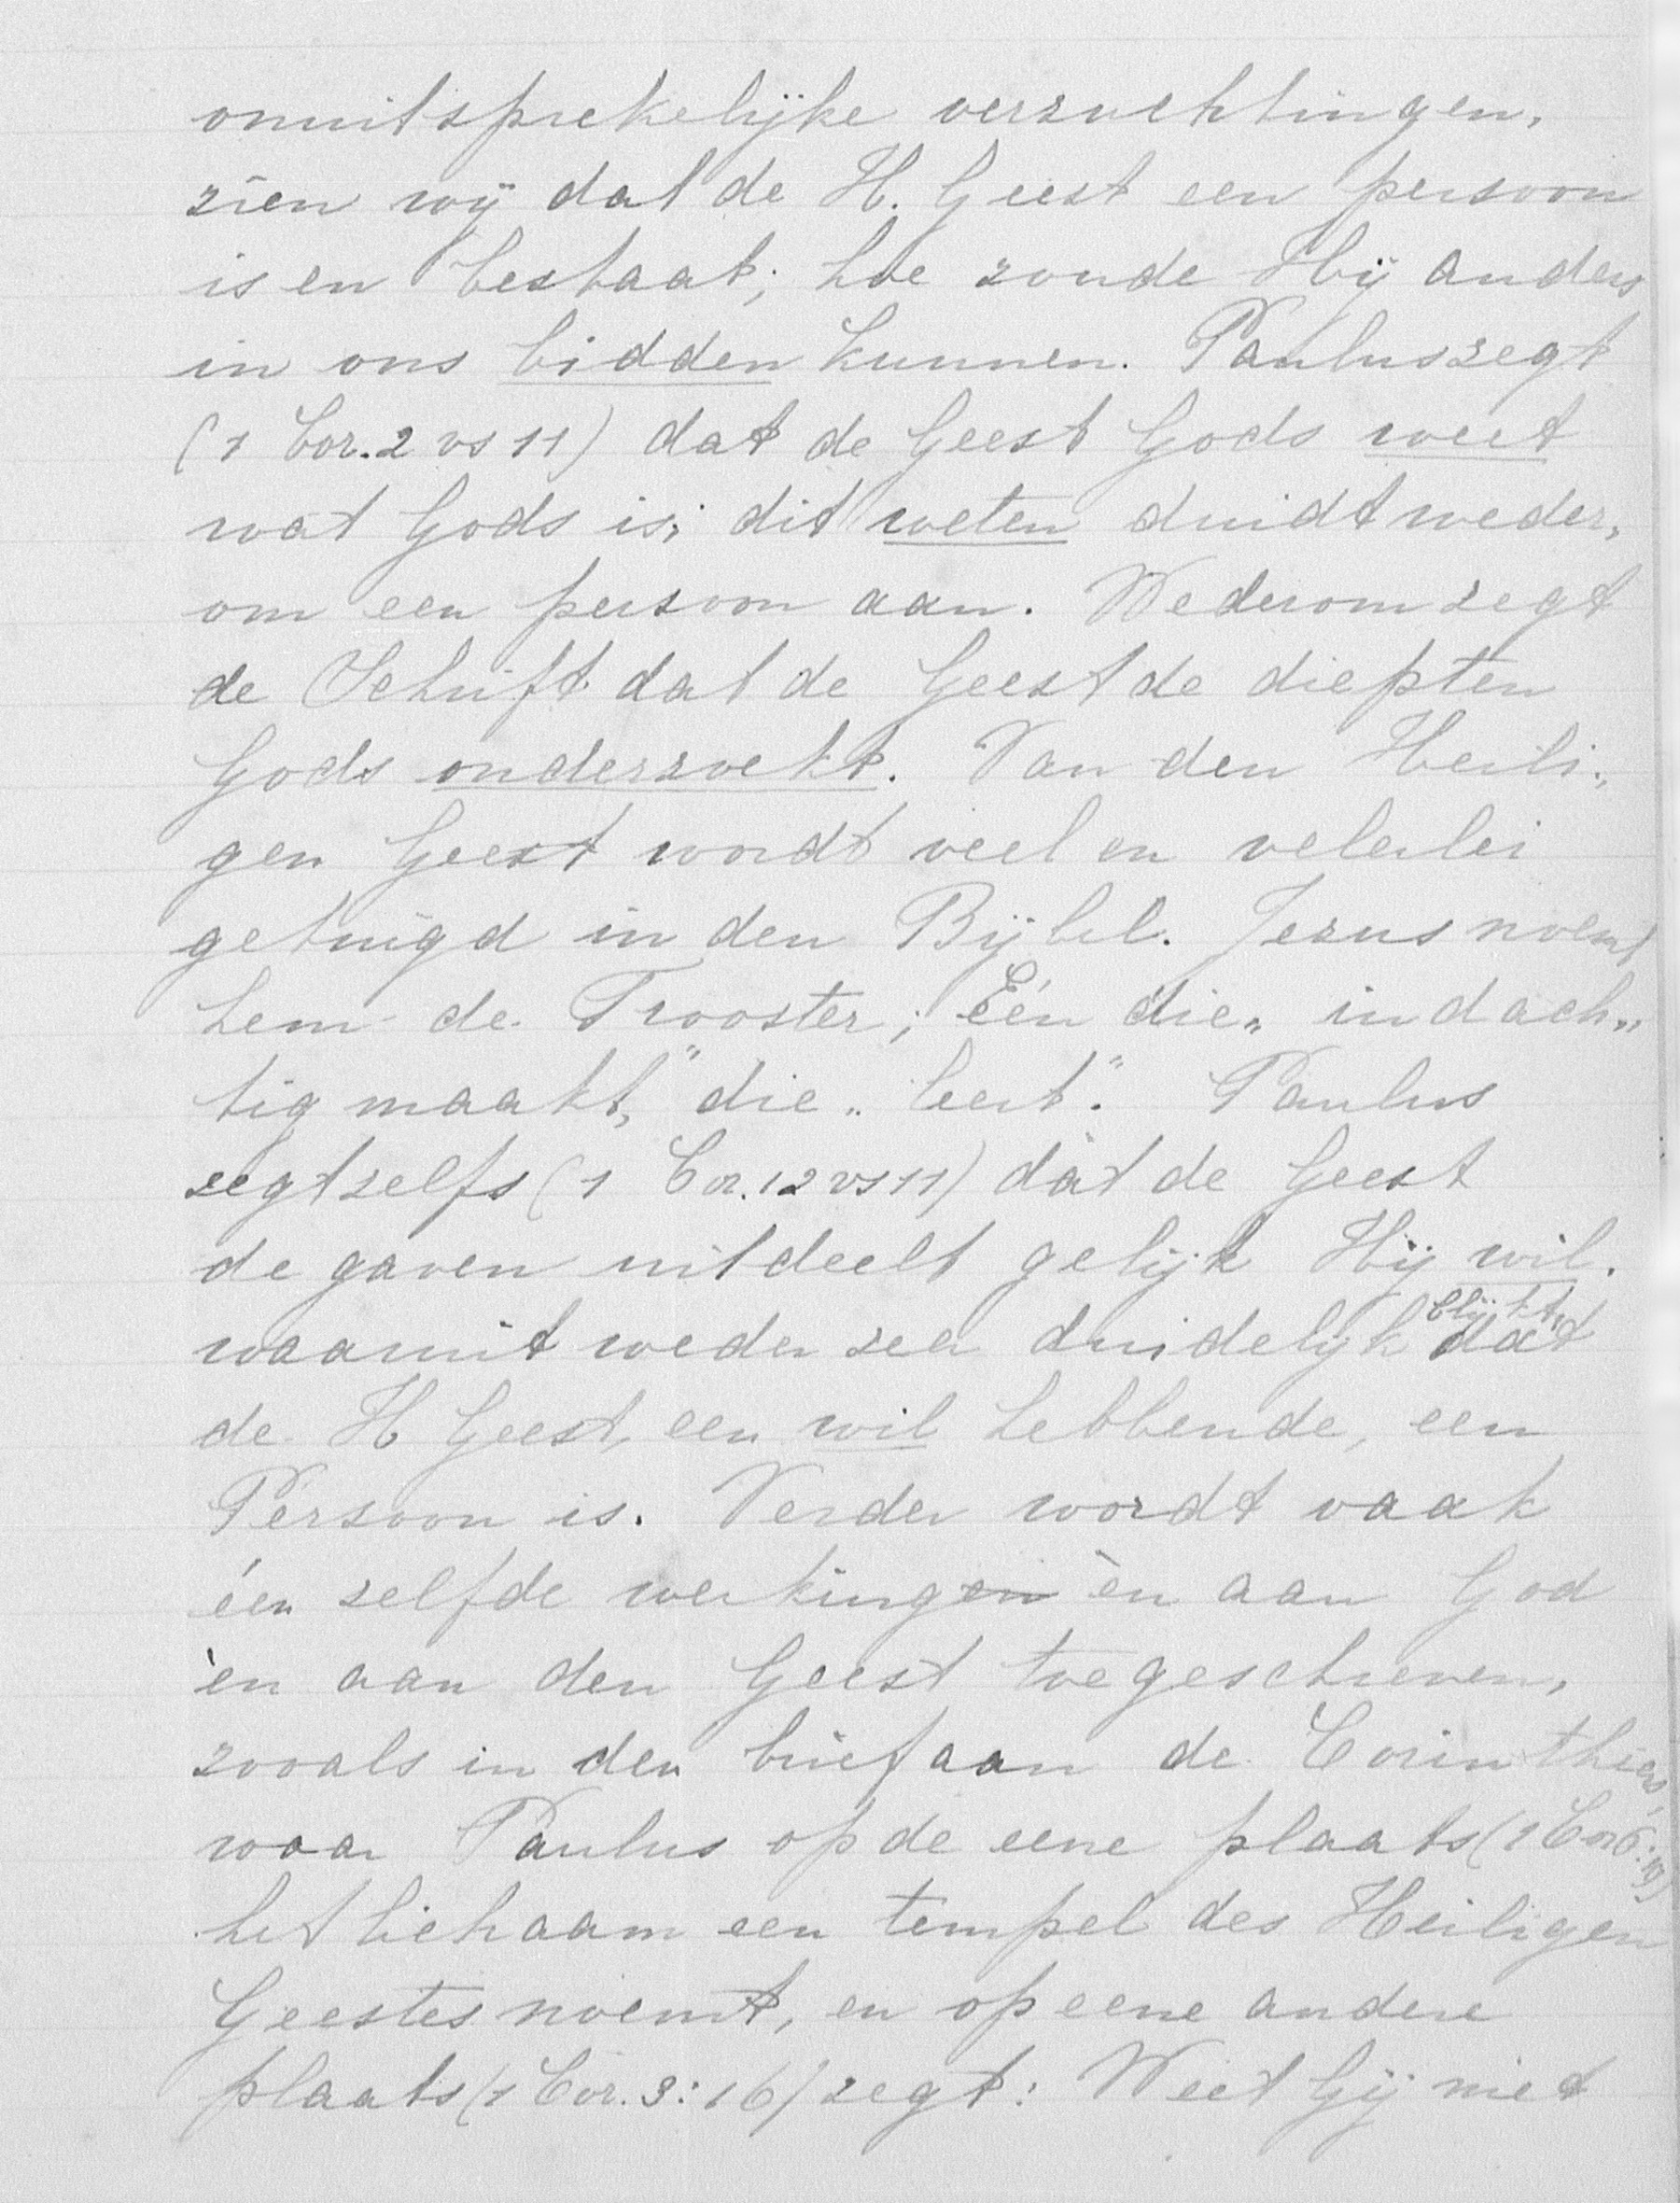 onuitsprekelijke verzuchtingen,
zien wij dat de H. Geest een persoon
is en bestaat; hoe zoude Hij anders
in ons bidden kunnen. Paulus zegt
(1 Cor. 2 vs 11) dat de Geest Gods weet
wat Gods is; dit weten duidt weder„
om een persoon aan. Wederom zegt
de Schrift dat de Geest de diepten
Gods onderzoekt. Van den Heili„
gen Geest wordt veel en velerlei
getuigd in den Bijbel. Jezus noemt
hem de Trooster; Eén die „indach„
tig maakt," die „leert". Paulus
zegt zelfs (1 Cor. 12 vs 11) dat de Geest
de gaven uitdeelt gelijk Hij wil.
waaruit weder zeer duidelijk blijkt, dat
de H Geest, een wil hebbende, een
Persoon is. Verder wordt vaak
éen zelfde werkingen èn aan God
èn aan den Geest toegeschreven,
zooals in den brief aan de Corinthiers,
waar Paulus op de eene plaats (1 Cor 6:19)
het lichaam een tempel des Heiligen
Geestes noemt, en op eene andere
plaats (1 Cor. 3:16) zegt: Weet Gij niet